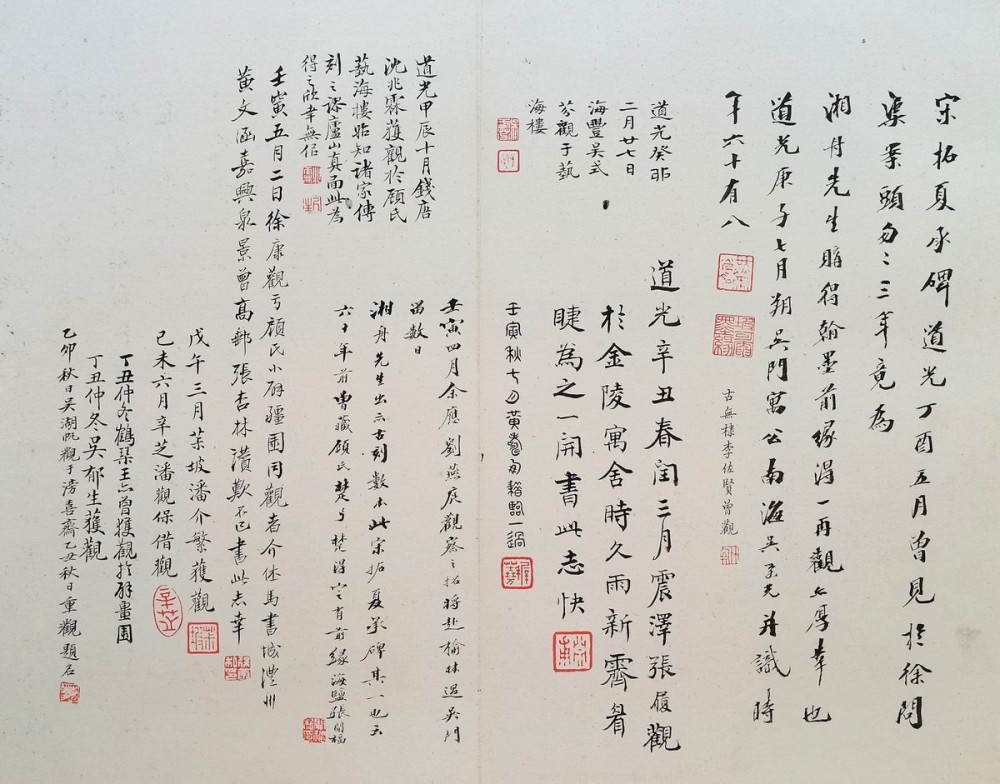 宋拓夏承碑道光丁酉五月曾見於徐問
渠案頭匆匆三年竟為
湘舟先生購得翰墨前緣得一再觀之厚幸也
道光庚子七月朔吳門寓公南海吳榮光并識時
年六十有八
古無棣李佐賢曾觀
道光癸卯
二月廿七日
海豐吳式
芬觀于藝
海樓
道光辛丑春閏三月震澤張履觀
於金陵寓舍時久雨新霽眉
睫為之一開書此志快
壬寅秋七月黃
臨一過
道光甲辰十月錢唐
沈兆霖獲觀於顧氏
藝海樓始知諸家傳
刻之謬廬山真面此為
得之欣幸無似
壬寅四月余應劉燕庭觀察之招將赴榆林過吳門
留數日
湘舟先生出示古刻數本此宋拓夏承碑其一也云
六十年前曾藏顧氏楚弓楚得定有前緣海鹽張開福
壬寅五月二日徐康觀于顧氏小辟疆園同觀者介休馬書城澧州
黃文涵嘉興泉景曾高郵張杏林讚歎不已書此志幸
戊午三月茮坡潘介繁獲觀
己未六月辛芝潘觀保借觀
丁丑仲冬鶴琹王忠曾獲觀於辟畺園
丁丑仲冬吳郁生獲觀
乙卯秋日吳湖帆觀于滂喜齋乙丑秋日重觀題名